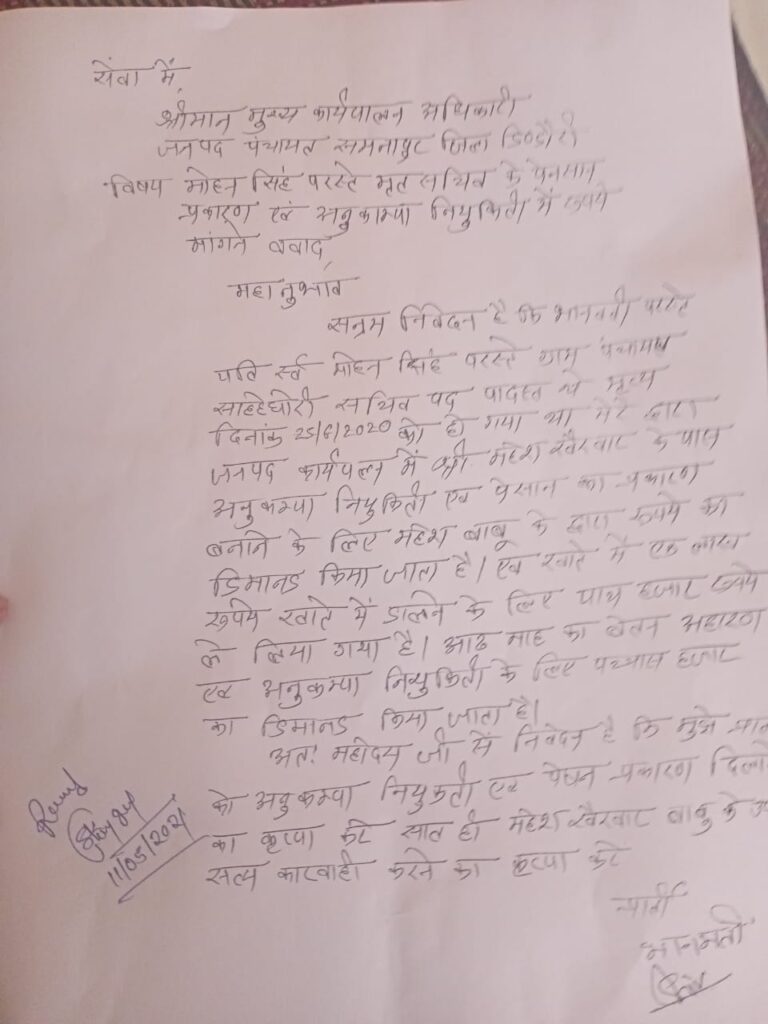 सेवा में,
श्रीमान मुख्य कार्यपालन अधिकारी
जनपद पंचायत समनापुर जिला डिण्डौरी
विषय मोहन सिंह परस्ते मृत सचिव के पेनसान
प्रकारण एवं अनुकाम्पा नियुकिती में रूपये
मांगते
महानुभाव
सनम्र निवेदन है कि भानवती परस्ते
पति स्व मोहन सिंह परस्ते ग्राम पंचायत
सचिव पद मृत्य
दिनांक 25/6/2020 को हो गया था मेरे द्वारा
जनपद कार्यपलन में श्री महेश खैरवार के पास
अनुकम्पा नियुकिती एवं पेसान का प्रकारण
बनाने के लिए महेश बाबू के द्वारा रूपये का
डिमानड किया जाता है। एवं खाते में एक लाख
रूपये खाते में डालने के लिए पाच हजार रूपये
ले लिया गया है। आठ माह का वेतन अहारण
एवं अनुकम्पा नियुकिती के लिए पच्चास हजार
का डिमानड किया जाता है।
अतः महोदय जी से निवेदन है कि मुझे
को अनुकम्पा नियुकती एवं पेंशन प्रकारण
का कृप्या करे सात ही महेश खैरवार बाबू के
सत्य कारवाही करने का कृप्या करे
भानमती
11/05/2021